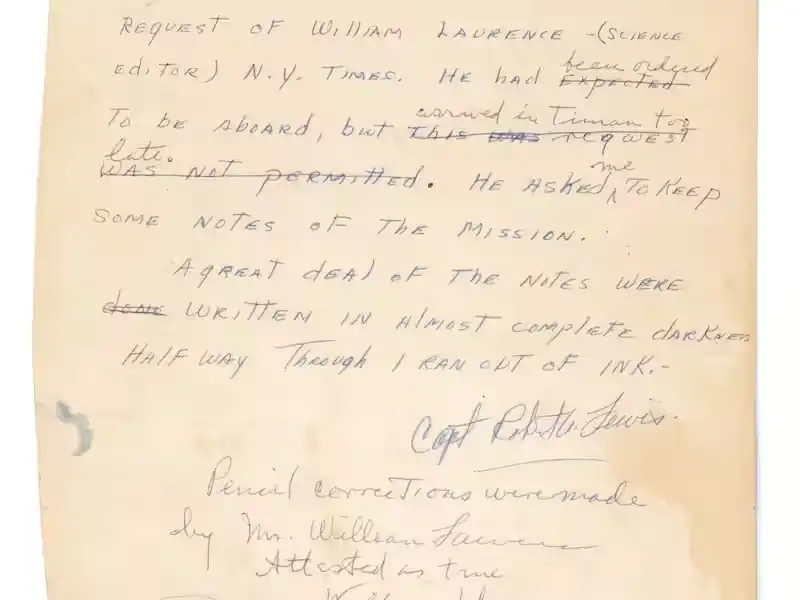 REQUEST OF William LAURENCE -(SCIENCE
been ordered
EDITOR) N.Y. TIMES. HE HAD EXPECTED
arrived in Tinian too
TO BE ABOARD, but THIS WAS REQUEST
late.
WAS NOT PERMITTED. HE ASKED me TO KEEP
SOME NOTES OF THE MISSION.
A GREAT DEAL OF THE NOTES WERE
DONE WRITTEN IN ALMOST COMPLETE DARKNESS
HALF WAY THROUGH I RAN OUT OF INK.-
Capt Robt A. Lewis.
Pencil corrections were made
by Mr. William Laurence
Attested as true